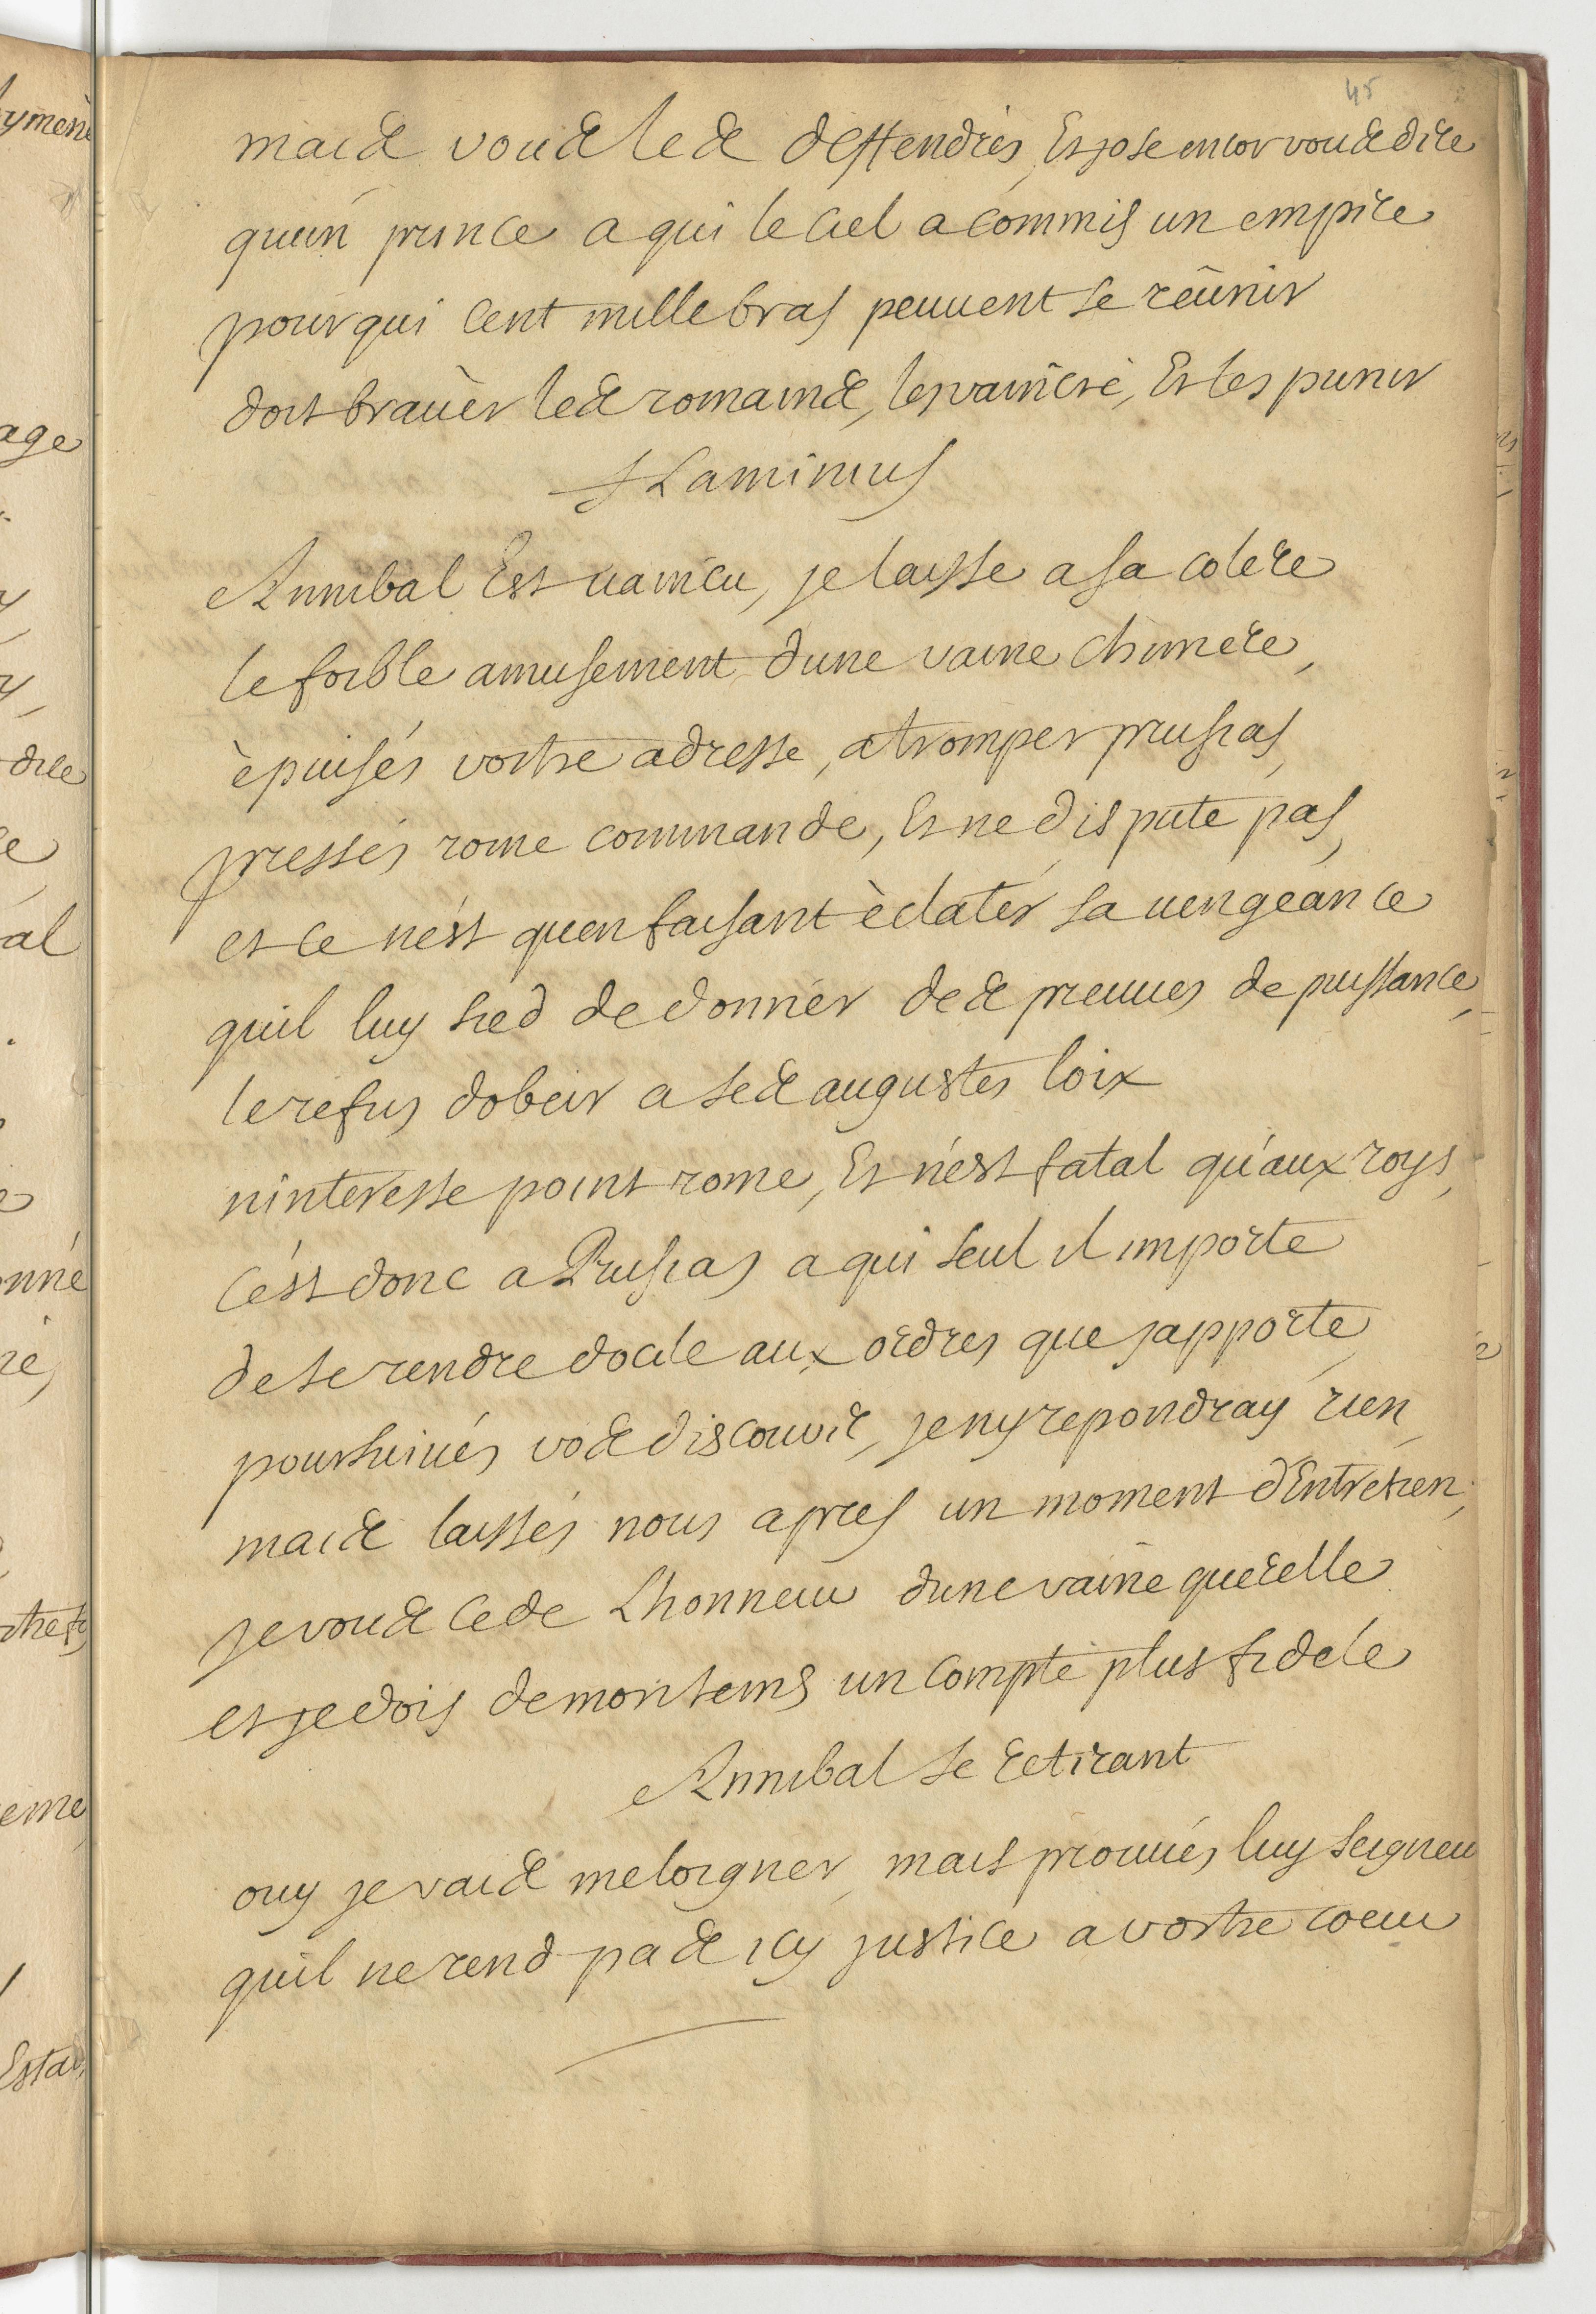 45
mais vous les deffendrés, Et jose encor vous dire
quun prince a qui le ciel a commis un empire
pour qui cent mille bras peuuent se reünir
doit brauèr les romains, les vaincre, Et les punir
flaminius
Annibal Est uaincu, je laisse a sa colere
le foible amusement dune vaine chimere,
èpuisés vostre adresse, a tromper prusias,
pressés rome commande, Et ne dispute pas,
et ce nést quen faisant èclatér sa uengeance
quil luy sied de donnér des preuues de puissance,
le refus dobeir a ses augustes loix
ninteresse point rome, Et nést fatal qu'aux roys,
cést donc a Prusias a qui seul il importe
de se rendre docile aux ordres que japporte,
poursuiués vos discours, je ny repondray rien,
mais laissés nous apres un moment d'Entretien,
je vous cede Lhonneur dune vaine querelle
et je dois de mon tems un compte plus fidele
Annibal se retirant
ouy je vais meloigner, mais prouués luy seigneur
quil ne rend pas icy justice a vostre coeur